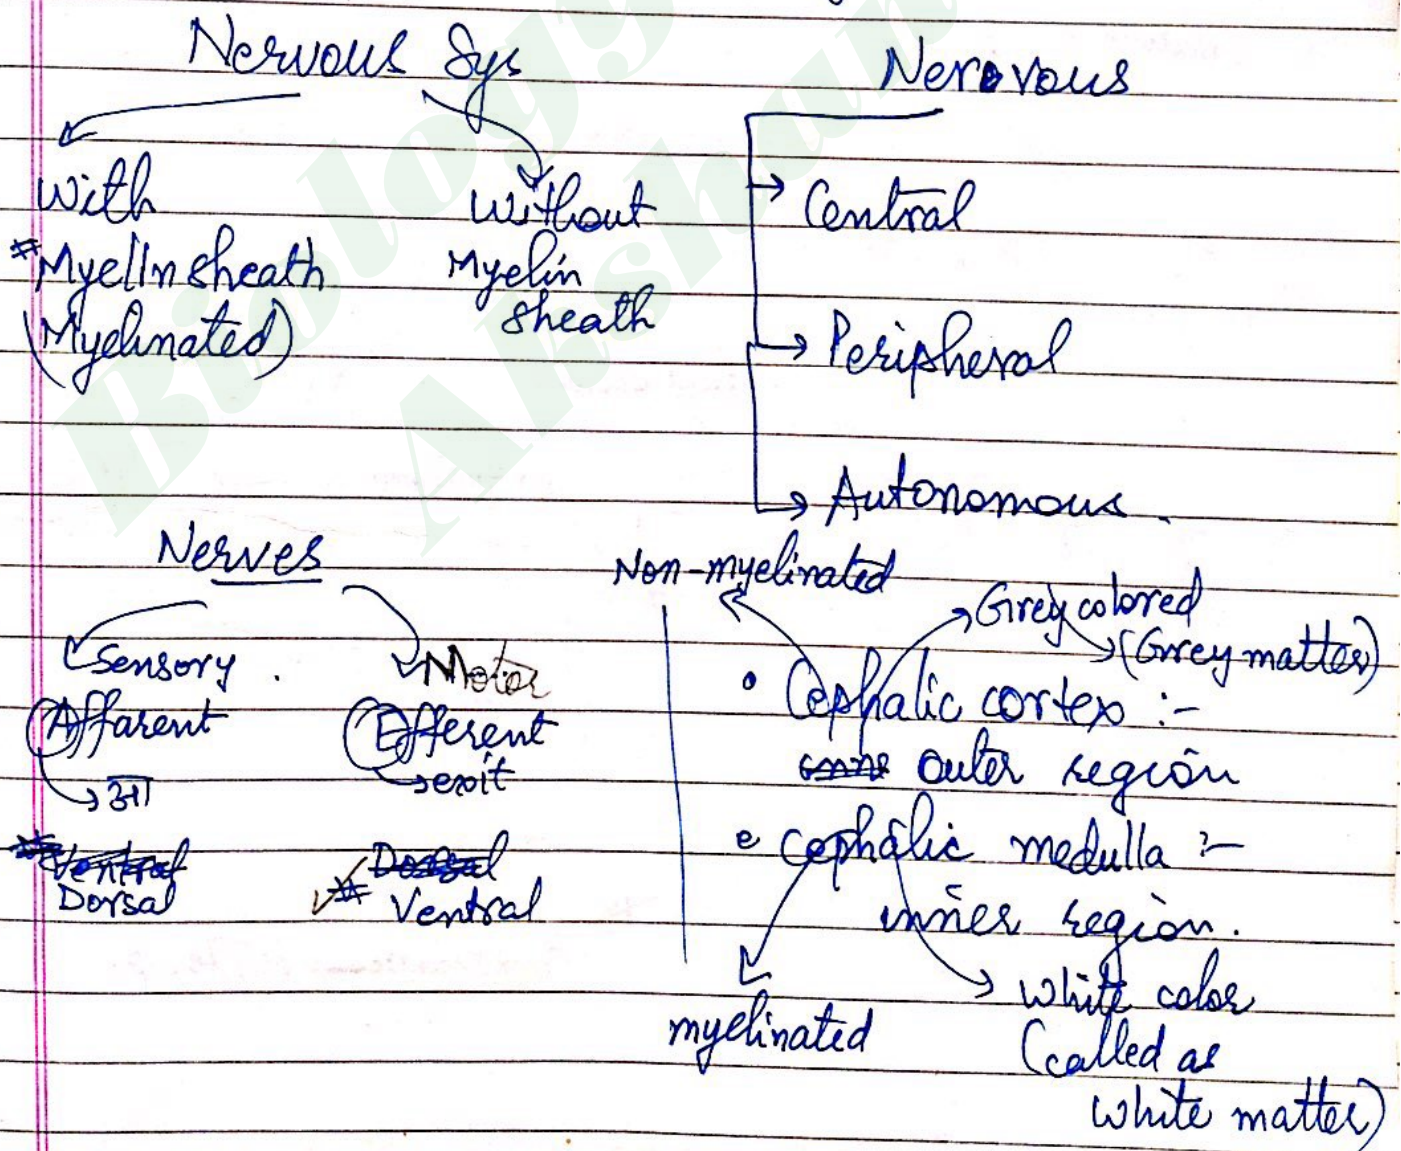 Nervous Sys
With
*Myelin sheath
(Myelinated)
Without
Myelin
sheath
Nervous
Central
Peripheral
Autonomous.
Nerves
Sensory.
Afferent
→ आ
Ventral
Dorsal
Motor
Efferent
→ exit
Dorsal
* Ventral
Non-myelinated
Grey colored
(Grey matter)
• Cephalic cortex :-
outer region
• Cephalic medulla :-
inner region.
myelinated
White color
(called as
white matter)
Biology